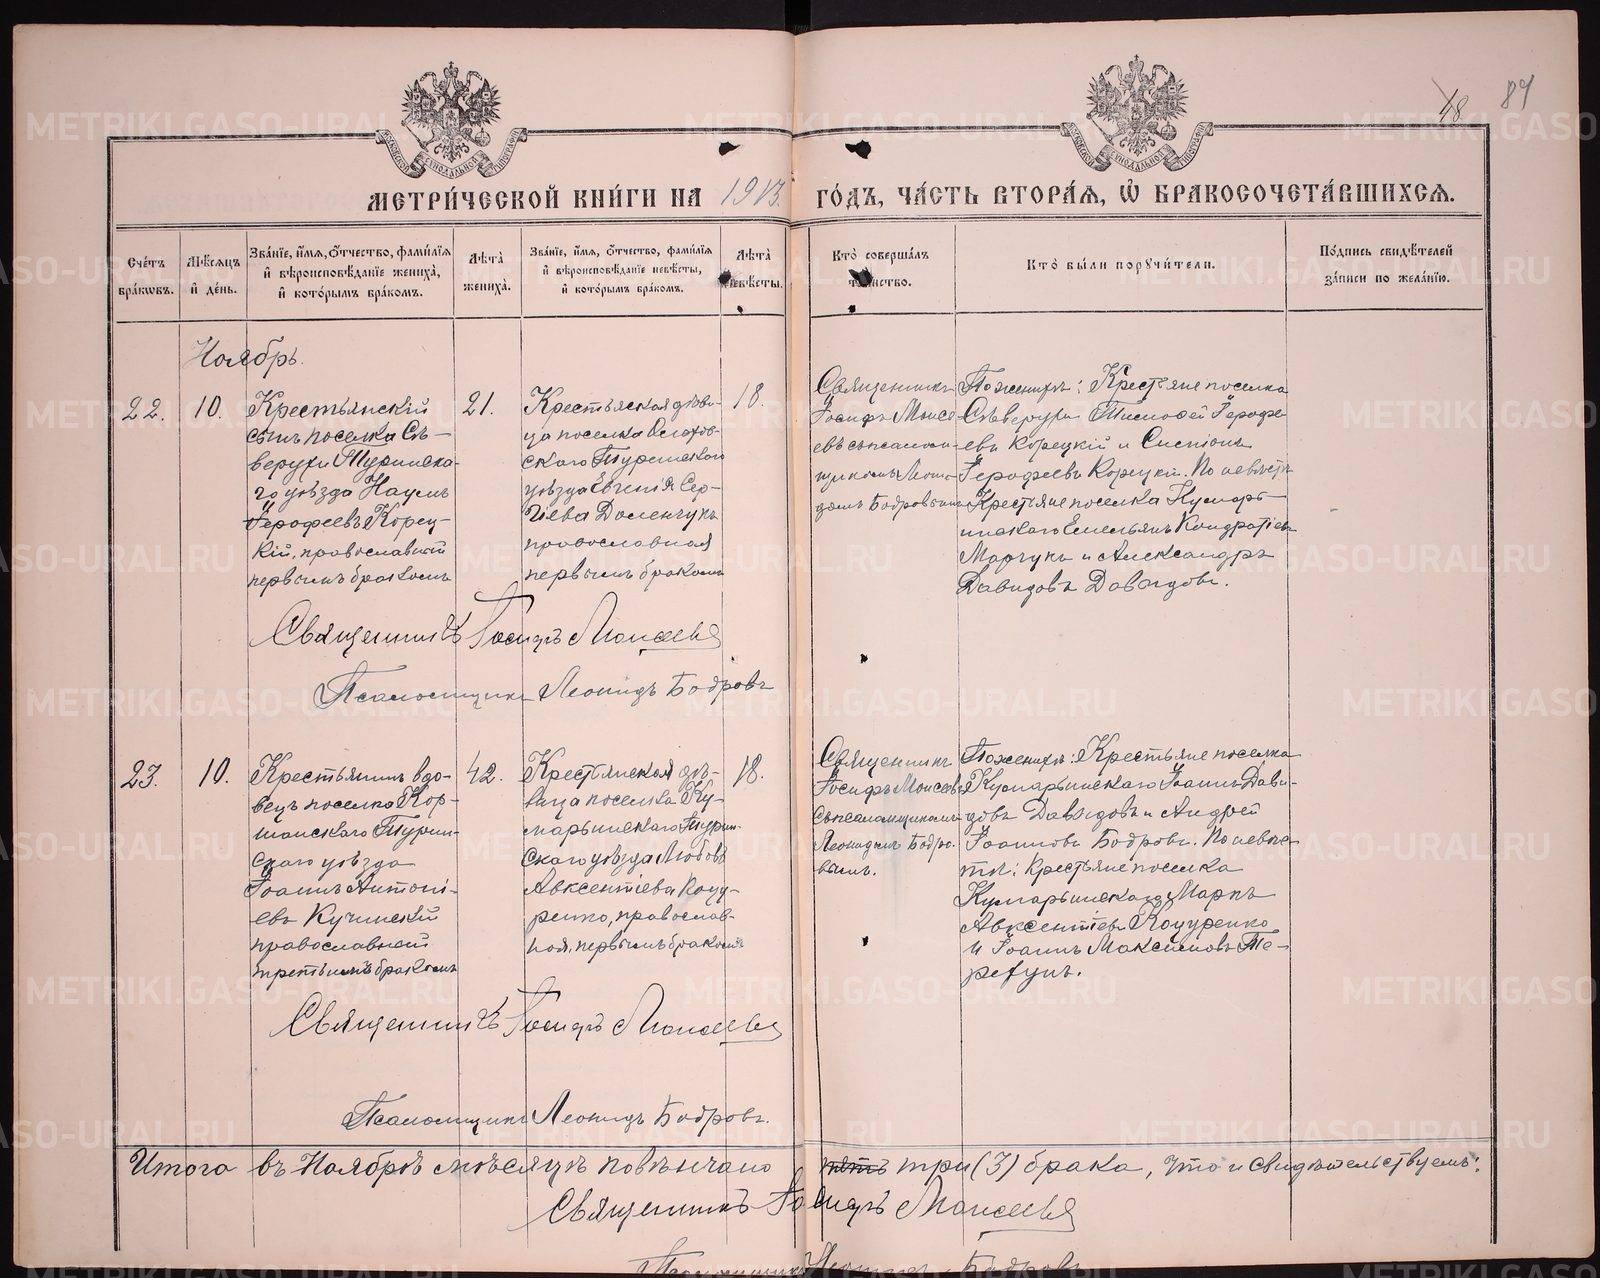 48 84
МЕТРИ́ЧЕСКОЙ КНИ́ГИ НА 1913 ГО́ДЪ, ЧА́СТЬ ВТОРА́Я, Ѽ БРАКОСОЧЕТА́ВШИХСЯ.
Сче́тъ бра́кωвъ.
Мѣ́сяцъ и де́нь.
Зва́нїе, и́мя, ѻ́тчество, фами́лїя и вѣроисповѣ́данїе жениха̀, и кото́рымъ бра́комъ.
Лѣта̀ жениха̀.
Зва́нїе, и́мя, ѻ́тчество, фами́лїя и вѣроисповѣ́данїе невѣ́сты, и кото́рымъ бра́комъ.
Лѣта̀ невѣ́сты.
Кто̀ соверша́лъ та́инство.
Кто̀ бы́ли поручи́тели.
По́дпись свидѣ́телей за́писи по жела́нїю.
Ноябрь.
22.
10.
Крестьянскій
сынъ поселка Сѣ-
верухи Туринска-
го уѣзда Наумъ
Іерофеевъ Корец-
кій, православный
первымъ бракомъ
21.
Крестьянская дѣви-
ца поселка
скаго Туринскаго
уѣзда Евгенія Сер-
гіева Доменчукъ
православная
первымъ бракомъ
18.
Священникъ
Іосифъ Моисе
евъ съ псалом-
щикомъ Леони-
домъ Бодровымъ
По женихѣ: Крестьяне поселка
Сѣверухи Тимофей Іерофе-
евъ Корецкій и
Іерофеевъ Корецкій. По невѣстѣ
Крестьяне поселка Кумарь-
инскаго Емельянъ Кондратіевъ
Марчукъ и Александръ
Давидовъ Давыдовъ.
Священникъ Іосифъ Моисеевъ
Псаломщикъ Леонидъ Бодровъ
23.
10.
Крестьянинъ вдо-
вецъ поселка Кор-
шанскаго Турин-
скаго уѣзда
Іоаннъ Антоні-
евъ Кучинскій
православный
третьимъ бракомъ
42.
Крестьянская дѣ-
вица поселка Ку-
марьинскаго Турин-
скаго уѣзда Любовь
Авксентіева Коцу-
ренко, православ-
ная, первымъ бракомъ
18.
Священникъ
Іосифъ Моисеевъ
съ псаломщикомъ
Леонидомъ Бодро-
вымъ.
По женихѣ: Крестьяне поселка
Кумарьинскаго Іоаннъ Дави-
довъ Давыдовъ и Андрей
Іоанновъ Бодровъ. По невѣс-
тѣ: Крестьяне поселка
Кумарьинскаго Маркъ
Авксентіевъ Коцуренко
и Іоаннъ Максимовъ Те-
репунъ.
Священникъ Іосифъ Моисеевъ
Псаломщикъ Леонидъ Бодровъ.
Итого въ Ноябрѣ мѣсяцѣ повѣнчано пять три (3) брака, что и свидѣтельствуемъ:
Священникъ Іосифъ Моисеевъ
Псаломщикъ Леонидъ Бодровъ
METRIKI.GASO-URAL.RU